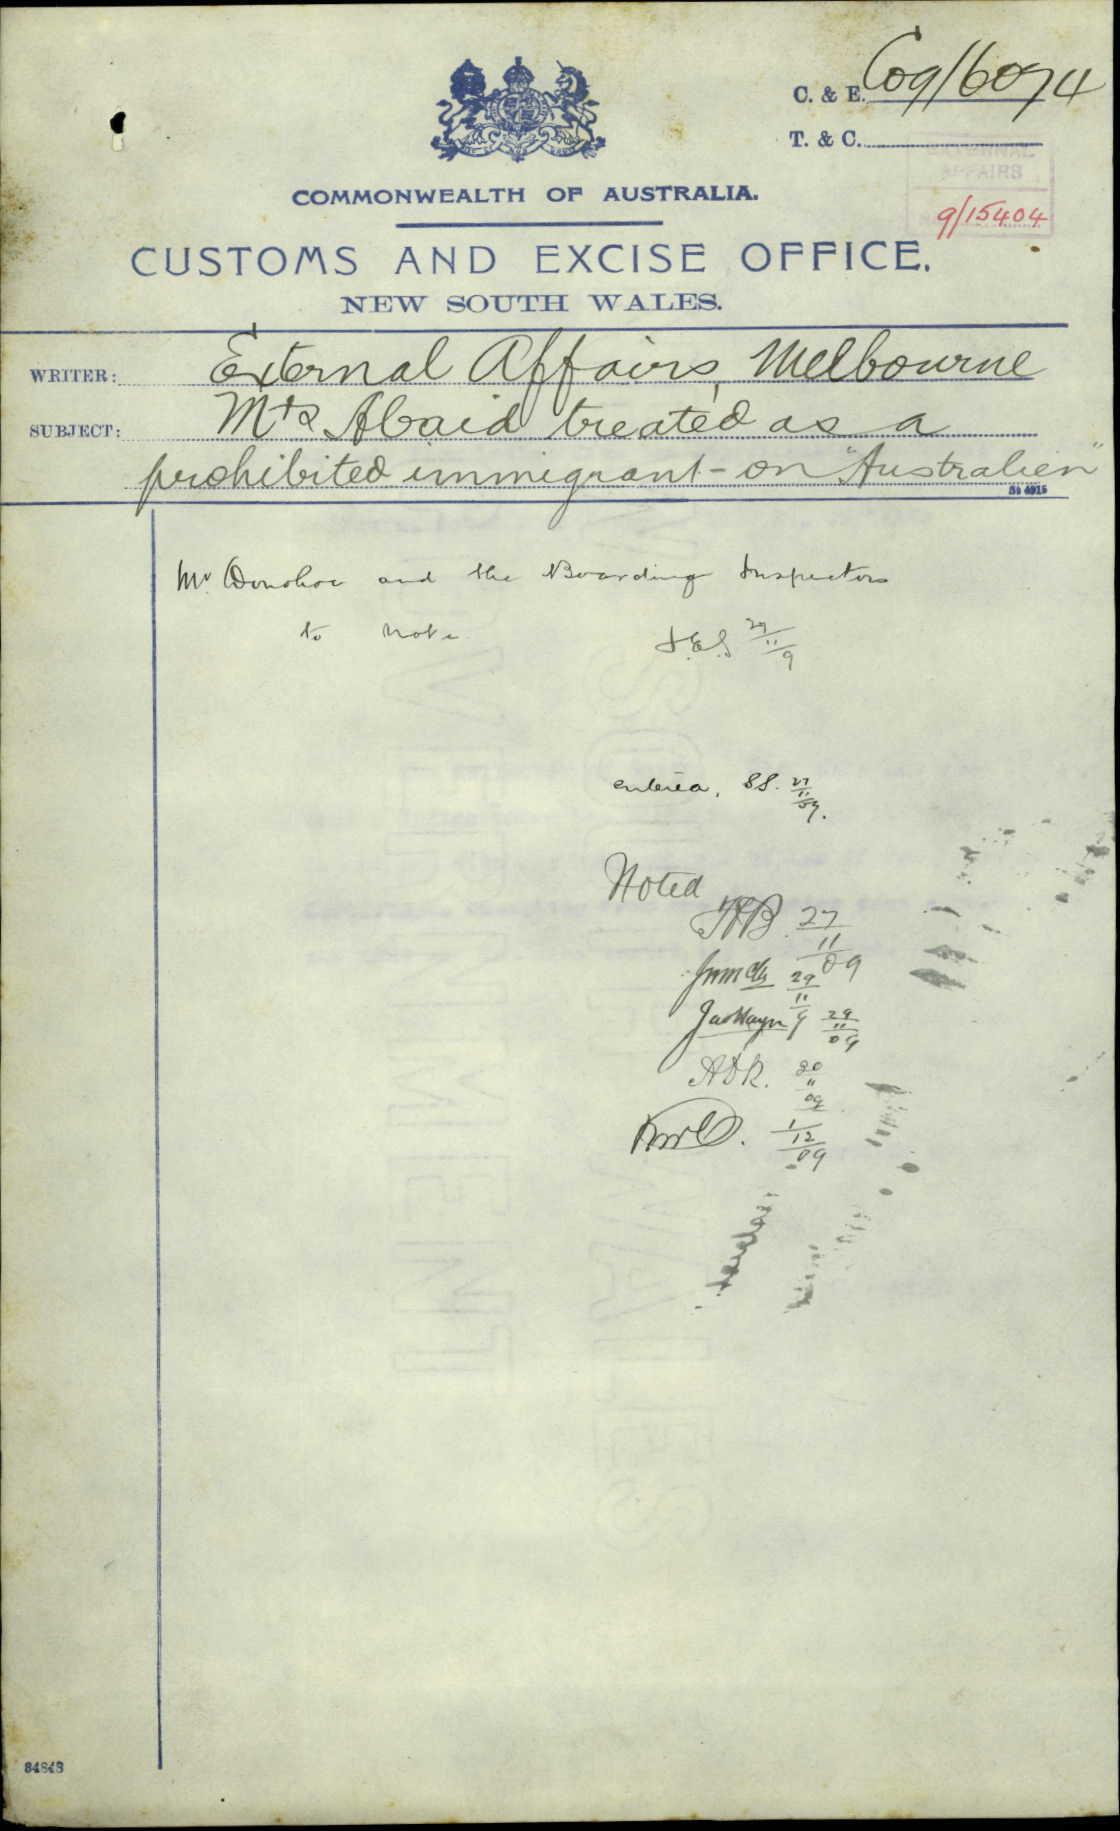 C. & E. C09/16074
T. & C.
EXTERNAL
AFFAIRS
9/15404
COMMONWEALTH OF AUSTRALIA.
CUSTOMS AND EXCISE OFFICE.
NEW SOUTH WALES.
WRITER: External Affairs, Melbourne
SUBJECT: Mrs Abaid treated as a
prohibited immigrant - on "Australien"
Mr. Donohoe and the Boarding Inspectors
to note
27/11/9
entered, SS. 27/11/09.
Noted
27/11/09
29/11/9
29/11/09
ADR.
1/12/09
84848